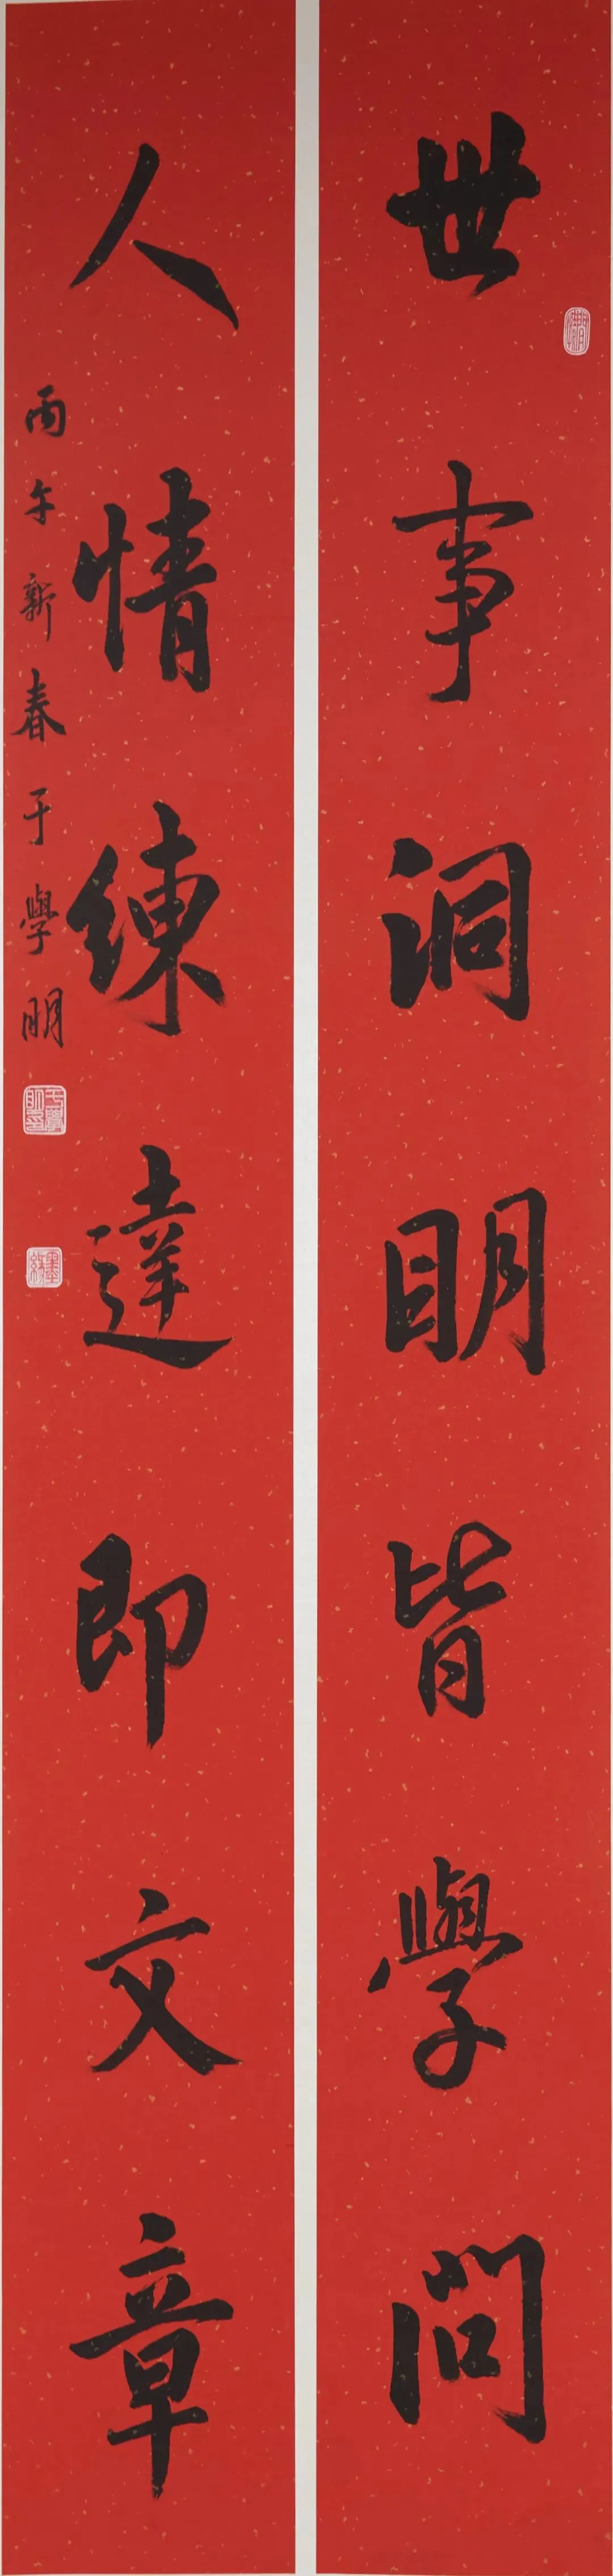 世事洞明皆學問
人情練達即文章
丙午新春于學明